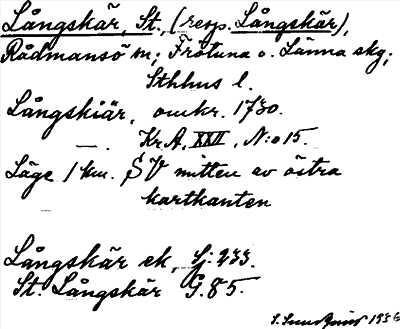 Långskär, St., (resp. Långskär),
Rådmansö sn; Frötuna o. Länna skg;
Sthlms l.
Långskiär, omkr. 1730.
— . Kr.A. XXII, N:o 15.
Läge 1 km. SV mitten av östra
kartkanten
Långskär ek, Sj: 233.
St. Långskär G. 85.